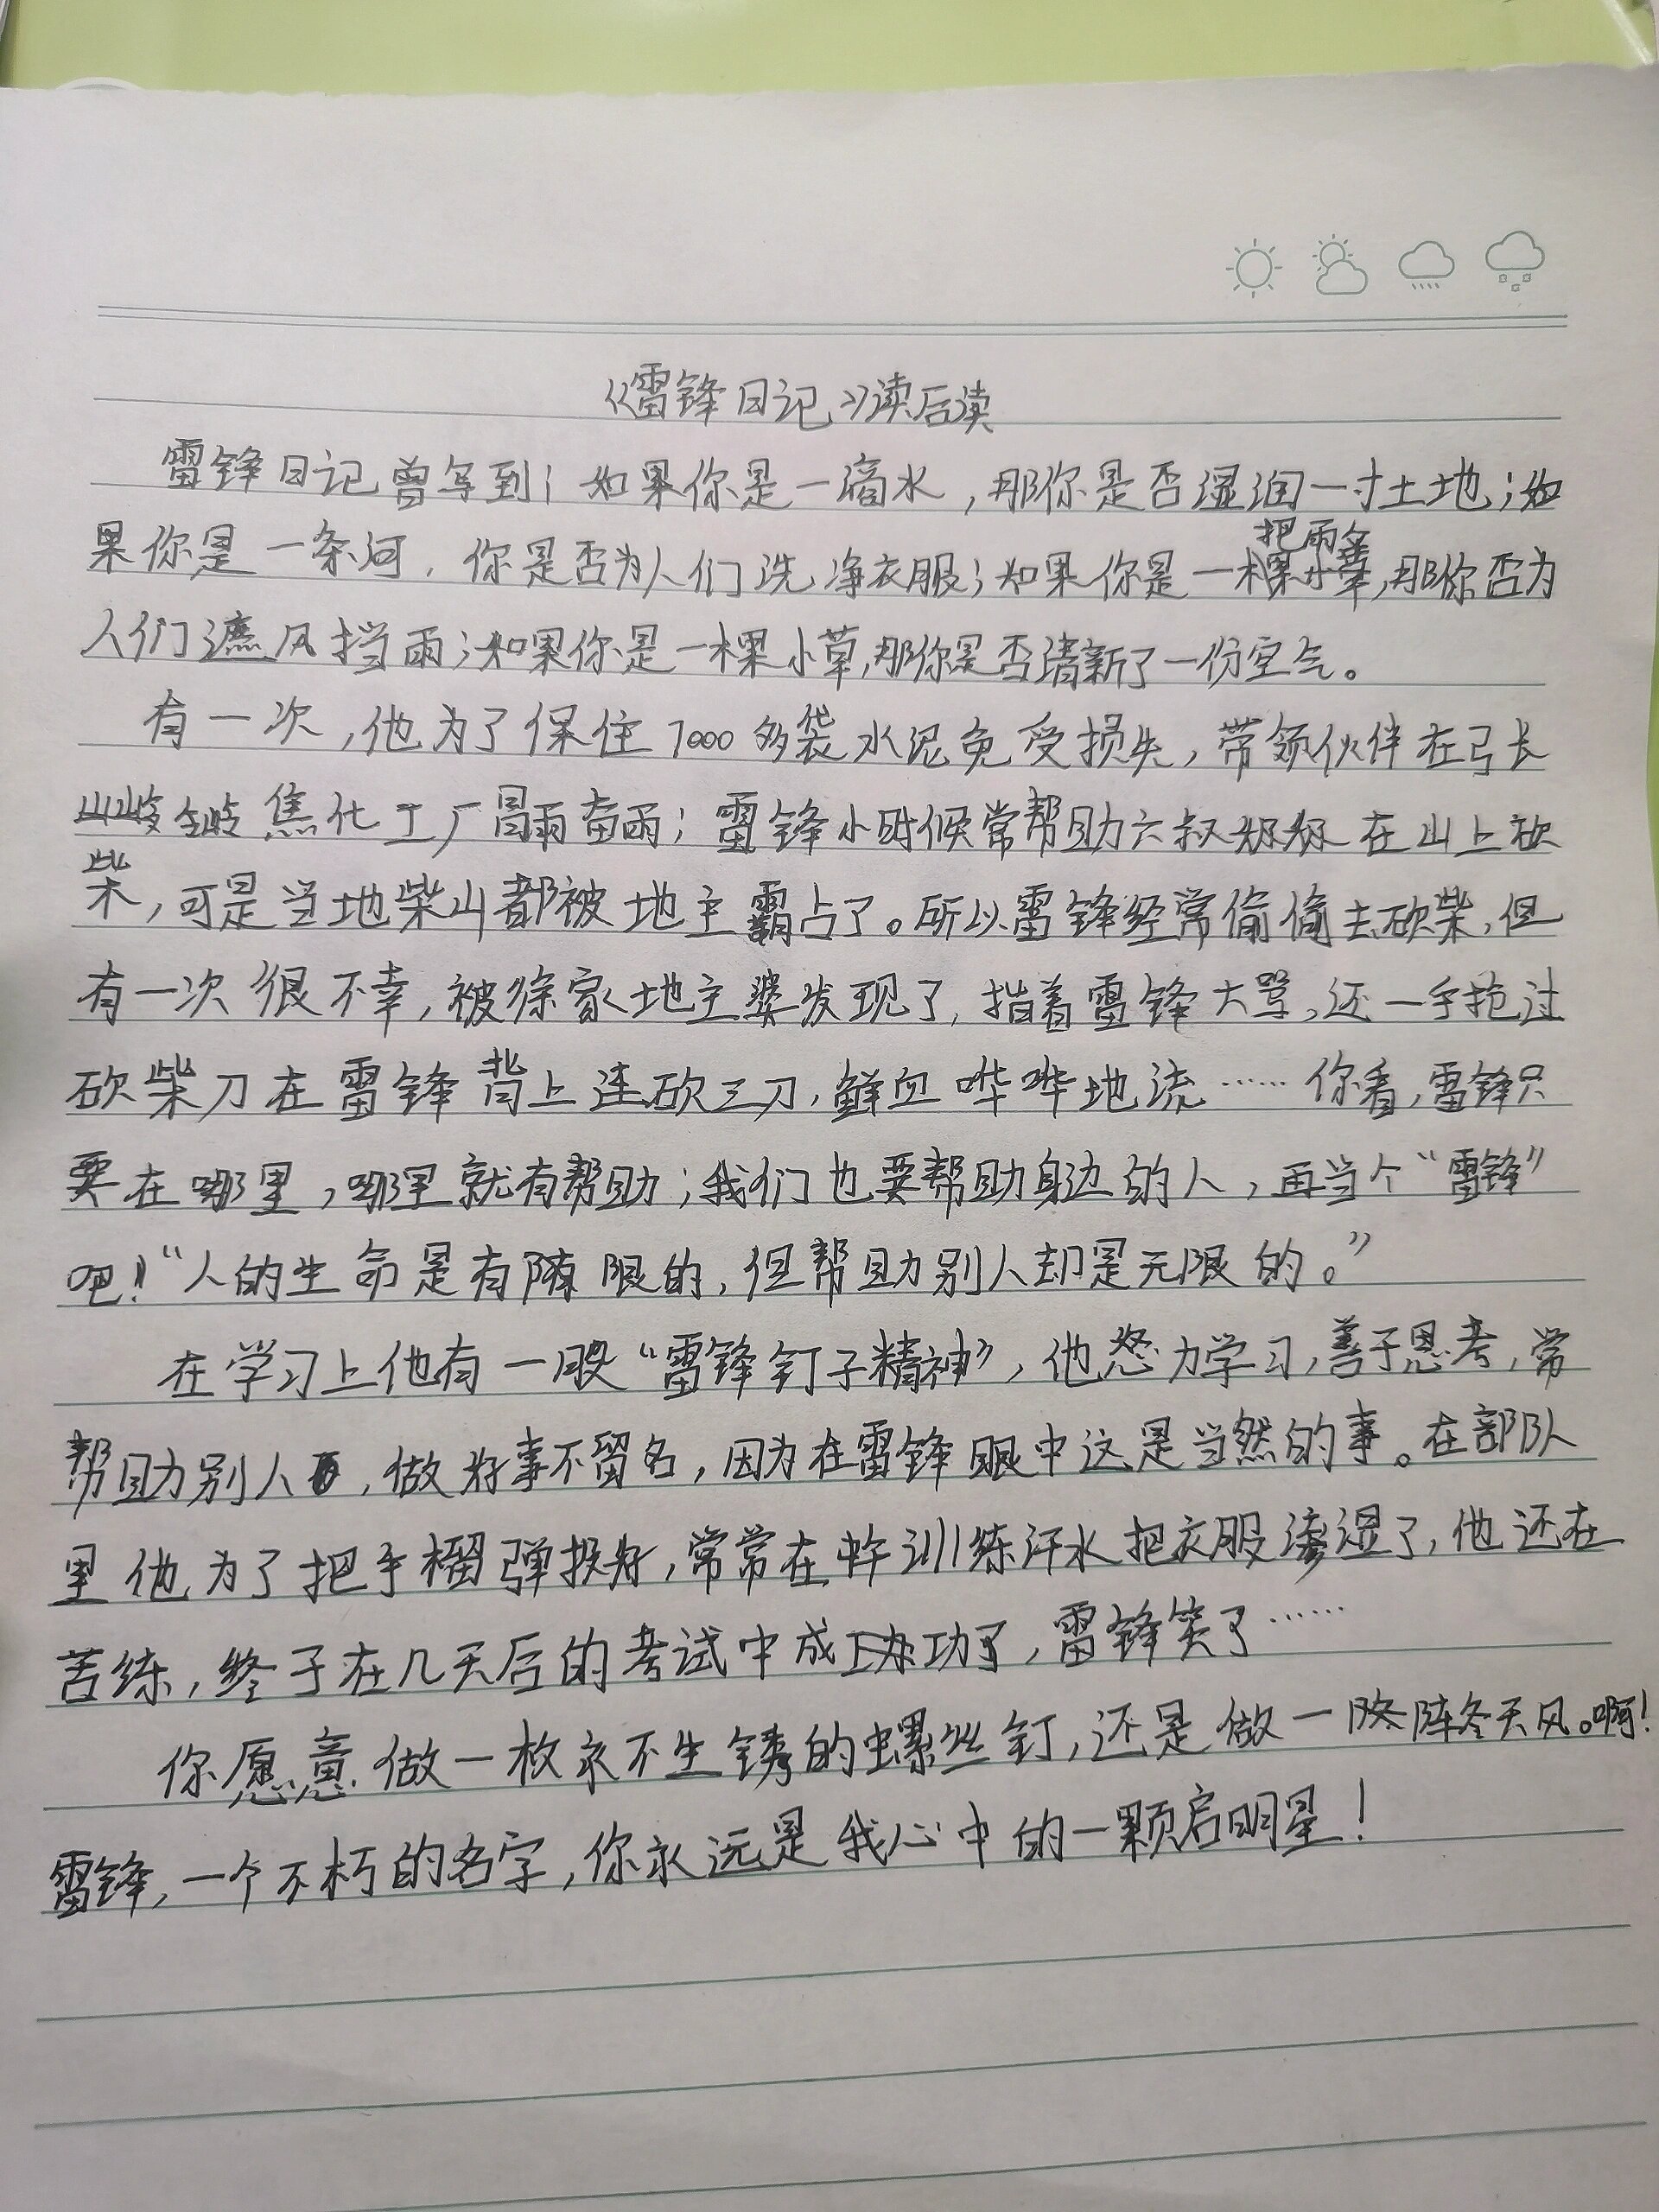 《雷锋日记》读后读
雷锋日记曾写到；如果你是一滴水，那你是否湿润一寸土地；如
果你是一条河，你是否为人们洗净衣服；如果你是一把雨伞，那你否为
人们遮风挡雨；如果你是一棵小草，那你是否清新了一份空气。
有一次，他为了保住7000多袋水泥免受损失，带领伙伴在弓长
焦化工厂冒雨奋雨；雷锋小时候常帮助六叔奶奶在山上砍
柴，可是当地柴山都被地主霸占了。所以雷锋经常偷偷去砍柴，但
有一次很不幸，被徐家地主婆发现了，指着雷锋大骂，还一手抢过
砍柴刀在雷锋背上连砍三刀，鲜血哗哗地流……你看，雷锋只
要在哪里，哪里就有帮助；我们也要帮助身边的人，再当个“雷锋”
吧！“人的生命是有限的，但帮助别人却是无限的。”
在学习上他有一股“雷锋钉子精神”，他努力学习，善于思考，常
帮助别人，做好事不留名，因为在雷锋眼中这是当然的事。在部队
里他为了把手榴弹投好，常常在训练汗水把衣服渗湿了，他还在
苦练，终于在几天后的考试中成功了，雷锋笑了……
你愿意做一枚永不生锈的螺丝钉，还是做一阵冬天风。啊！
雷锋，一个不朽的名字，你永远是我心中的一颗启明星！